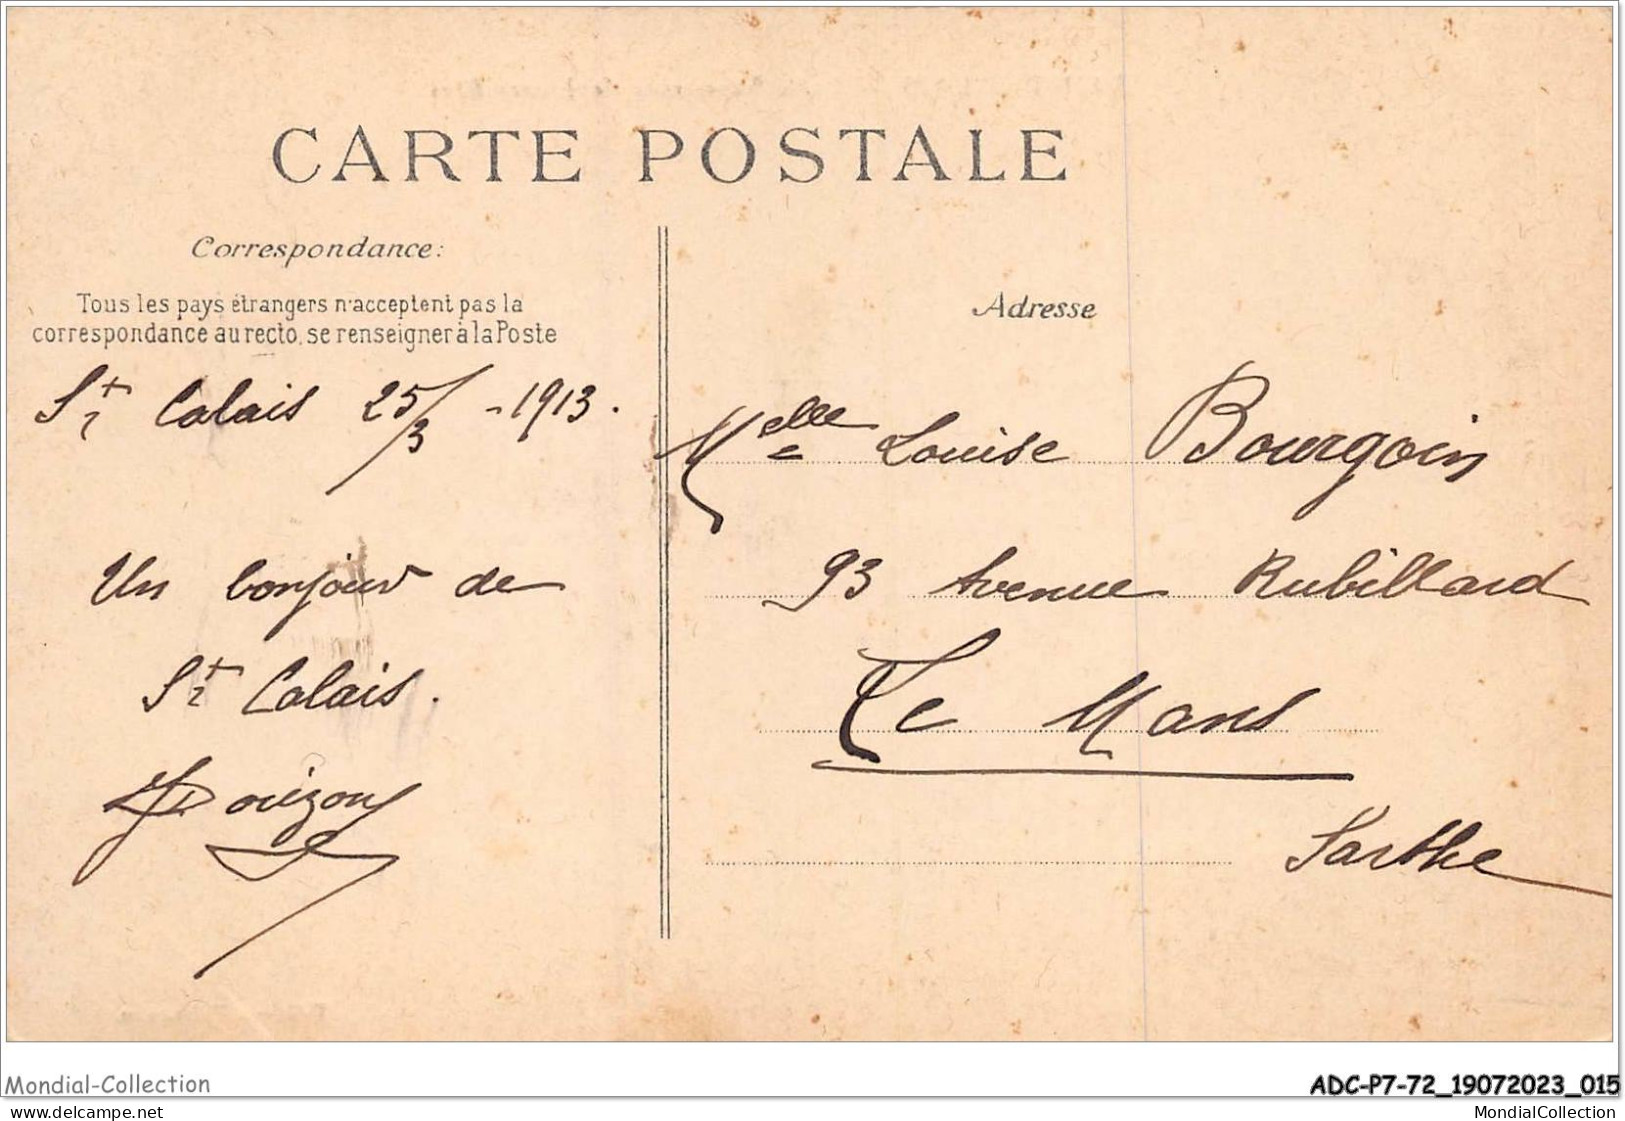 CARTE POSTALE
Correspondance:
Tous les pays étrangers n'acceptent pas la
correspondance au recto, se renseigner à la Poste
Adresse
St Calais 25/3 - 1913.
Un bonjour de
St Calais.
Melle Louise Bourgoin
93 Avenue Rubillard
Le Mans
Sarthe
Mondial-Collection
ADC-P7-72_19072023_015
www.delcampe.net
MondialCollection